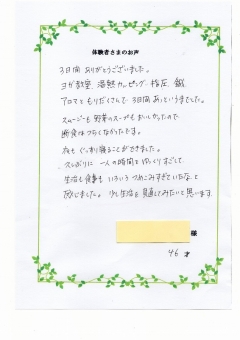 体験者さまのお声
3日間 ありがとうございました。
ヨガ教室、温熱カッピング、指圧、鍼
アロマともりだくさんで、3日間あっというまでした。
スムージーも野菜のスープもおいしかったので
断食はつらくなかったです。
夜もぐっすり寝ることができました。
久しぶりに 一人の時間をゆっくりすごして、
生活も食事も いろいろつめこみすぎていたな、と
感じました。 少し生活も見直してみたいと思います。
様
46 才